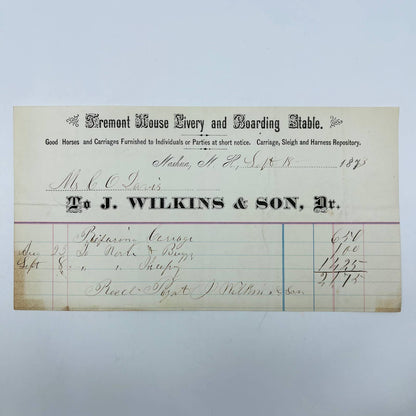 Tremont House Livery and Boarding Stable.
Good Horses and Carriages Furnished to Individuals or Parties at short notice. Carriage, Sleigh and Harness Repository.
Nashua, N. H., Sept 18 1875
Mr C. C.
To J. WILKINS & SON, Dr.
Repairing Carriage 6 50
Aug 25 To Horse & Buggy 1 00
Sept 8 " " 14 25
21 75
Recd Paymt J Wilkins & Son